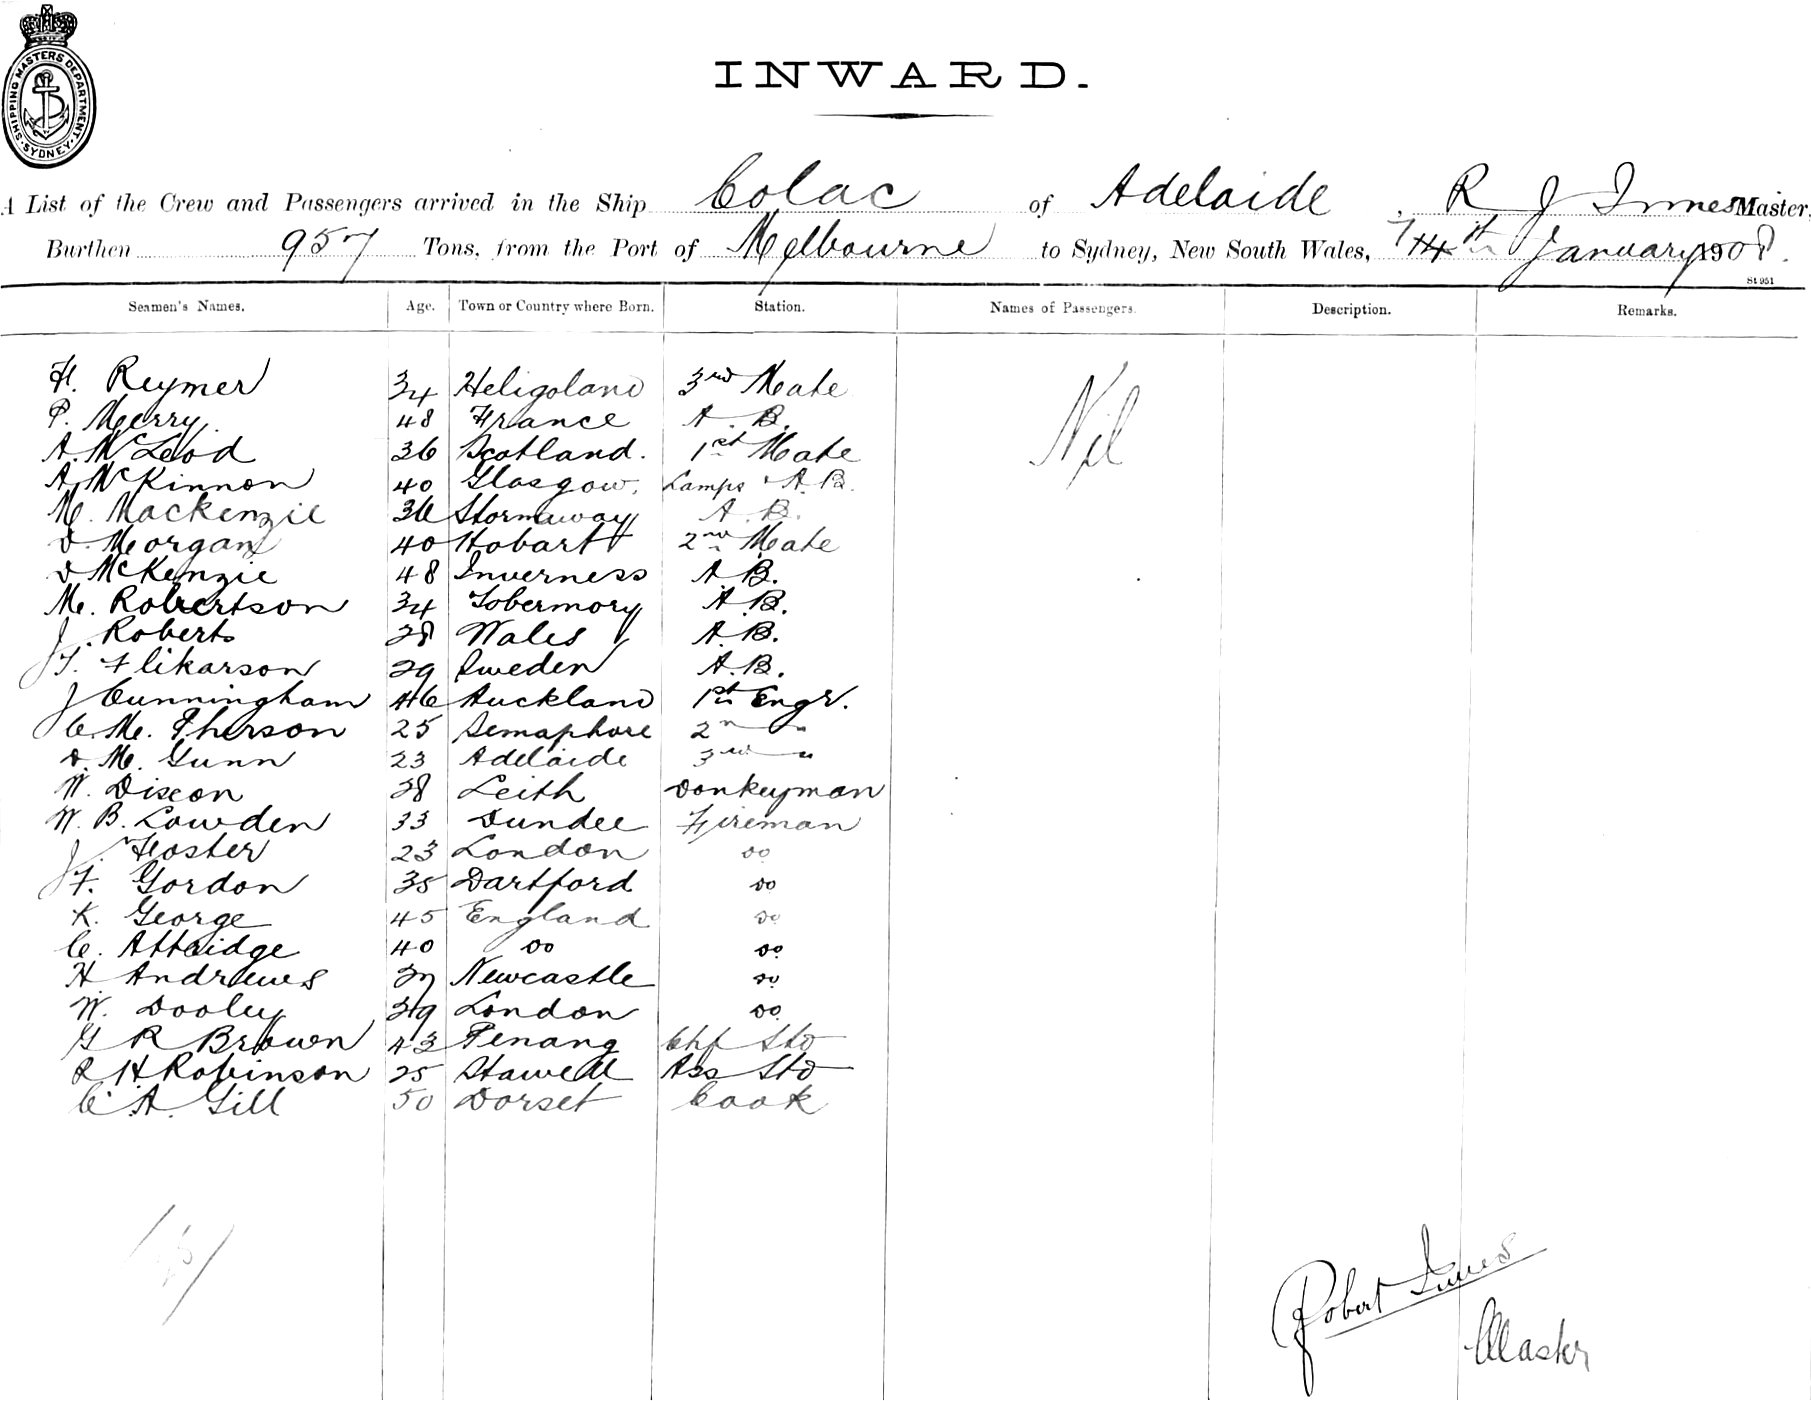 SHIPPING MASTERS DEPARTMENT. SYDNEY.
INWARD.
A List of the Crew and Passengers arrived in the Ship Colac of Adelaide, R J Innes Master,
Burthen 957 Tons, from the Port of Melbourne to Sydney, New South Wales, 14th January 1908.
St 951
Seamen's Names. Age. Town or Country where Born. Station. Names of Passengers. Description. Remarks.
H. Reymer 34 Heligoland 3rd Mate Nil
P. Merry. 48 France A. B.
A. McLeod 36 Scotland. 1st Mate
A. McKinnon 40 Glasgow. Lamps & A. B.
M. Mackenzie 36 Stornaway A. B.
D. Morgan 40 Hobart 2nd Mate
D McKenzie 48 Inverness A. B.
M. Robertson 34 Tobermory A. B.
J. Roberts 28 Wales A. B.
J. T. Flikarson 29 Sweden A. B.
J Cunningham 46 Auckland 1st Engr.
C. Mc. Pherson 25 Semaphore 2n "
D. M. Gunn 23 Adelaide 3rd "
W. Dixon 28 Leith Donkeyman
W. B. Lowden 33 Dundee Fireman
J. Foster 23 London do
J. F. Gordon 35 Dartford do
K. George 45 England do
C. Attridge 40 do do
H Andrews 27 Newcastle do
W. Dooley 29 London do
G R Brown 43 Penang Chf Std
R H Robinson 25 Stawell Ass Std
C. A. Gill 50 Dorset Cook
Robert Innes
Master